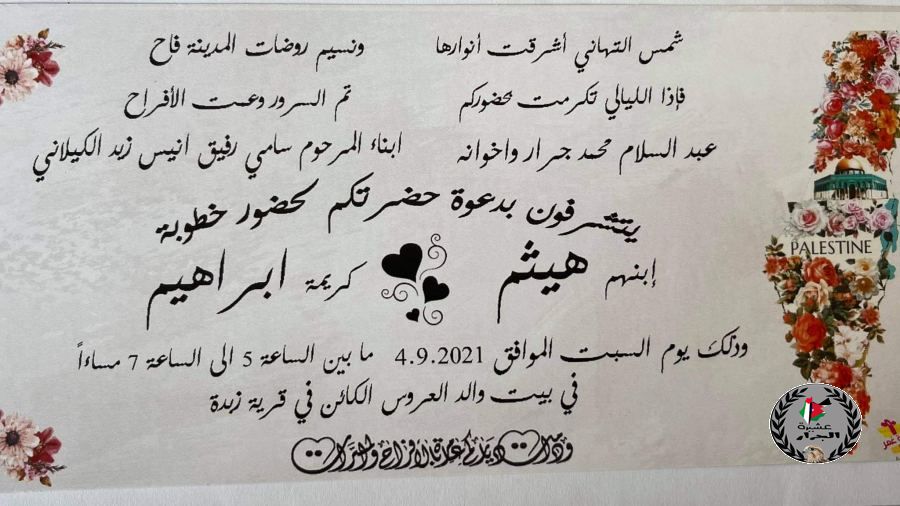 شمس التهاني أشرقت أنوارها ونسيم روضات المدينة فاح
فإذا الليالي تكرمت بحضوركم تم السرور وعمت الأفراح
عبد السلام محمد جرار واخوانه ابناء المرحوم سامي رفيق انيس زيد الكيلاني
يتشرفون بدعوة حضرتكم لحضور خطوبة
إبنهم هيثم كريمة ابراهيم
وذلك يوم السبت الموافق 4.9.2021 ما بين الساعة 5 الى الساعة 7 مساءاً
في بيت والد العروس الكائن في قرية زبدة
ودامت دياركم عامرة بالافراح والمسرات
PALESTINE
عشيرة
الجرار